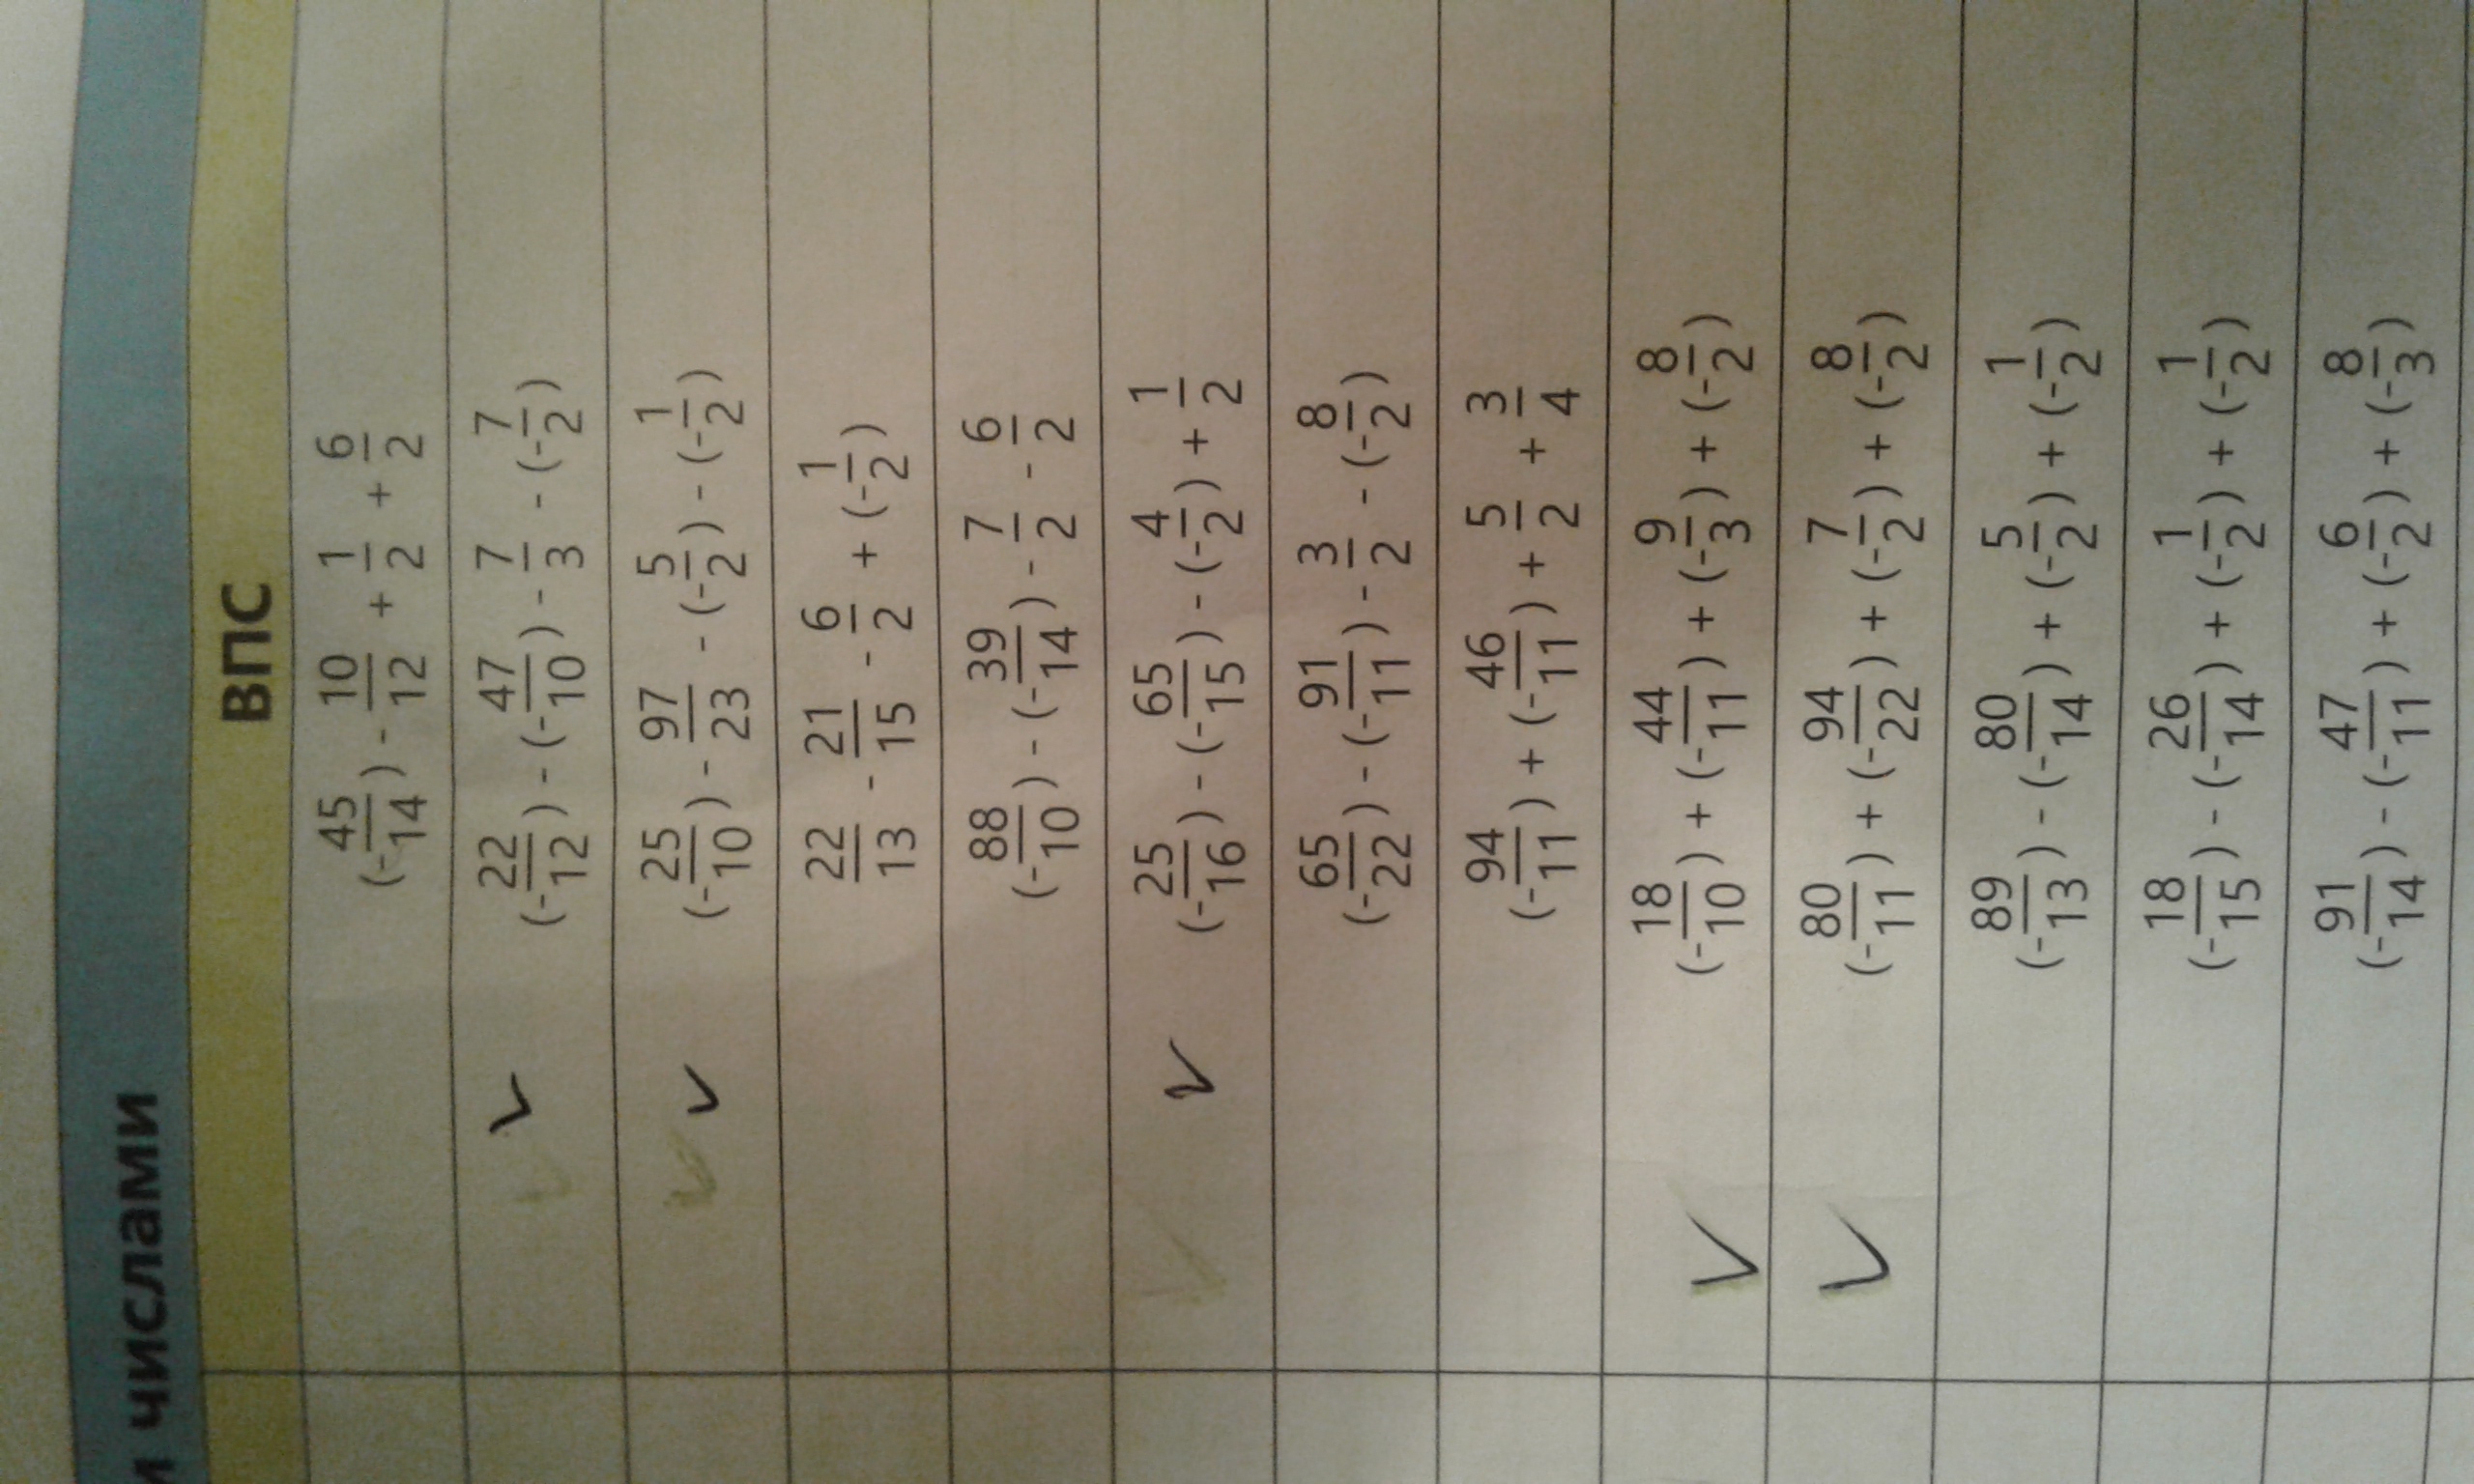 и числами
ВПС
(-45/14) - 10/12 + 1/2 + 6/2
(-22/12) - (-47/10) - 7/3 - (-7/2)
(-25/10) - 97/23 - (-5/2) - (-1/2)
22/13 - 21/15 - 6/2 + (-1/2)
(-88/10) - (-39/14) - 7/2 - 6/2
(-25/16) - (-65/15) - (-4/2) + 1/2
(-65/22) - (-91/11) - 3/2 - (-8/2)
(-94/11) + (-46/11) + 5/2 + 3/4
(-18/10) + (-44/11) + (-9/3) + (-8/2)
(-80/11) + (-94/22) + (-7/2) + (-8/2)
(-89/13) - (-80/14) + (-5/2) + (-1/2)
(-18/15) - (-26/14) + (-1/2) + (-1/2)
(-91/14) - (-47/11) + (-6/2) + (-8/3)